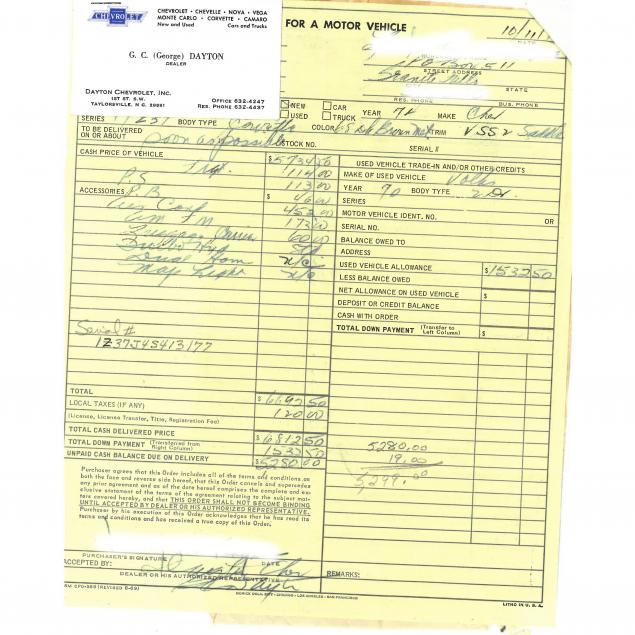 CHEVROLET
CHEVROLET • CHEVELLE • NOVA • VEGA
MONTE CARLO • CORVETTE • CAMARO
New and Used Cars and Trucks
G. C. (George) DAYTON
DEALER
DAYTON CHEVROLET, INC.
1ST ST. S.W.
TAYLORSVILLE, N. C. 28681
OFFICE 632-4247
RES. PHONE 632-4437
FOR A MOTOR VEHICLE
10/11/
P O Box 511
STREET ADDRESS
Granite Falls
STATE
RES. PHONE BUS. PHONE
NEW CAR YEAR 74 MAKE Chev
USED TRUCK
SERIES BODY TYPE Corvette COLOR TRIM
TO BE DELIVERED
ON OR ABOUT soon as possible STOCK NO. SERIAL #
CASH PRICE OF VEHICLE $5734 50
USED VEHICLE TRADE-IN AND/OR OTHER CREDITS
MAKE OF USED VEHICLE Volks
P.S. 114 00
YEAR 70 BODY TYPE 2 Dr.
113 00
ACCESSORIES P.B. $ 46 00
SERIES
Air Cond 452 00
MOTOR VEHICLE IDENT. NO. OR
Am Fm 173 00
SERIAL NO.
60 00
BALANCE OWED TO
ADDRESS
Dual Horn N/C
USED VEHICLE ALLOWANCE $1532 50
Map Light N/C
LESS BALANCE OWED
NET ALLOWANCE ON USED VEHICLE $
DEPOSIT OR CREDIT BALANCE
CASH WITH ORDER
TOTAL DOWN PAYMENT (Transfer to Left Column) $
Serial #
1Z37J4S413177
TOTAL $6692 50
LOCAL TAXES (IF ANY) 120 00
(License, License Transfer, Title, Registration Fee)
TOTAL CASH DELIVERED PRICE $6812 50
TOTAL DOWN PAYMENT (Transferred from Right Column) 1532 50
UNPAID CASH BALANCE DUE ON DELIVERY $5280 00
5280.00
19.00
5299.00
Purchaser agrees that this Order includes all of the terms and conditions on
both the face and reverse side hereof, that this Order cancels and supersedes
any prior agreement and as of the date hereof comprises the complete and ex-
clusive statement of the terms of the agreement relating to the subject mat-
ters covered hereby, and that THIS ORDER SHALL NOT BECOME BINDING
UNTIL ACCEPTED BY DEALER OR HIS AUTHORIZED REPRESENTATIVE.
Purchaser by his execution of this Order acknowledges that he has read its
terms and conditions and has received a true copy of this Order.
PURCHASER'S SIGNATURE DATE
ACCEPTED BY:
DEALER OR HIS AUTHORIZED REPRESENTATIVE
REMARKS:
LITHO IN U. S. A.